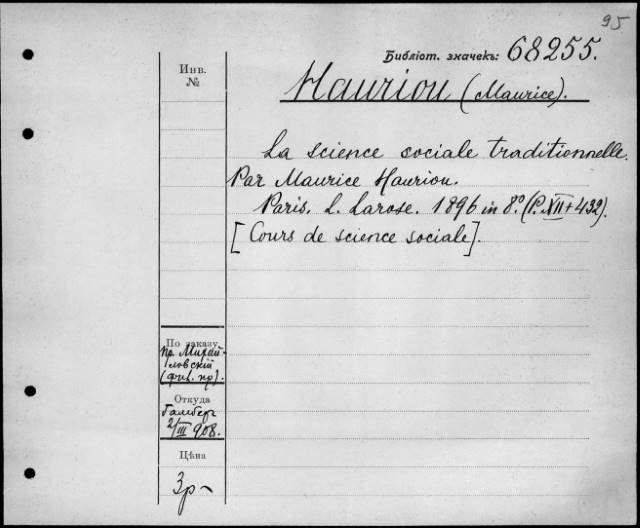 95
Библіот. значекъ: 68255.
Инв.
№
Hauriou (Maurice).
La science sociale traditionnelle.
Par Maurice Hauriou.
Paris. L. Larose. 1896 in 8.° (P. XII+432).
[Cours de science sociale].
По заказу
пр. Михай-
ловскій
(фил. пр).
Откуда
Гамбер
2/III 908.
Цѣна
3р